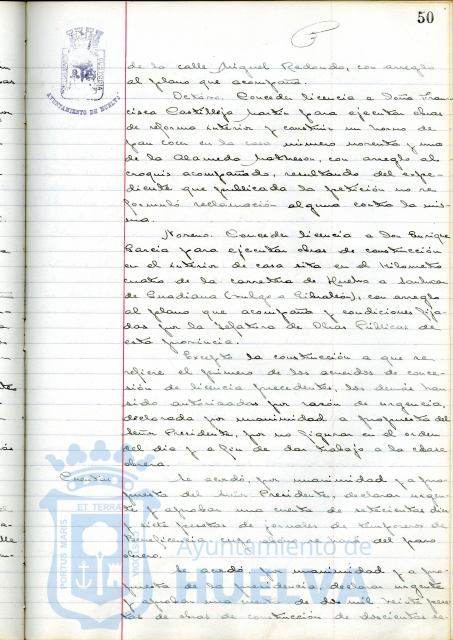 50
AYUNTAMIENTO DE HUELVA
de la calle Miguel Redondo, con arreglo
al plano que acompaña.
Octavo. Conceder licencia a Doña Fran-
cisca Castilleja Martín para ejecutar obras
de reforma interior y construir un horno de
pan cocer en la casa número noventa y uno
de la Alameda Sundheim, con arreglo al
croquis acompañado, resultando del expe-
diente que publicada la petición no se
formuló reclamación alguna contra la mis-
ma.
Noveno. Conceder licencia a Don Enrique
García para ejecutar obras de construcción
en el interior de casa sita en el kilómetro
cuatro de la carretera de Huelva a Sanlúcar
de Guadiana (Gibraleón), con arreglo
al plano que acompaña y condiciones fija-
das por la Jefatura de Obras Públicas de
esta provincia.
Excepto la construcción a que se
refiere el primero de los acuerdos de conce-
sión de licencia precedentes, los demás han
sido autorizadas por razón de urgencia,
declarada por unanimidad a propuesta del
Señor Presidente, por no figurar en el orden
del día y a fin de dar trabajo a la clase
obrera.
Cuentas
Se acordó, por unanimidad y a pro-
puesta del Señor Presidente, declarar urgen-
te y aprobar una cuenta de setecientas diez
y siete pesetas de jornales de temporeros de
Beneficencia, del paro
obrero.
Se acordó por unanimidad y a pro-
puesta de la presidencia, declarar urgente
y aprobar una cuenta de dos mil veinte pese-
tas de obras de construcción de doscientas se-
PORTUS MARIS
ET TERRAE
CUSTODIA
Ayuntamiento de
HUELVA